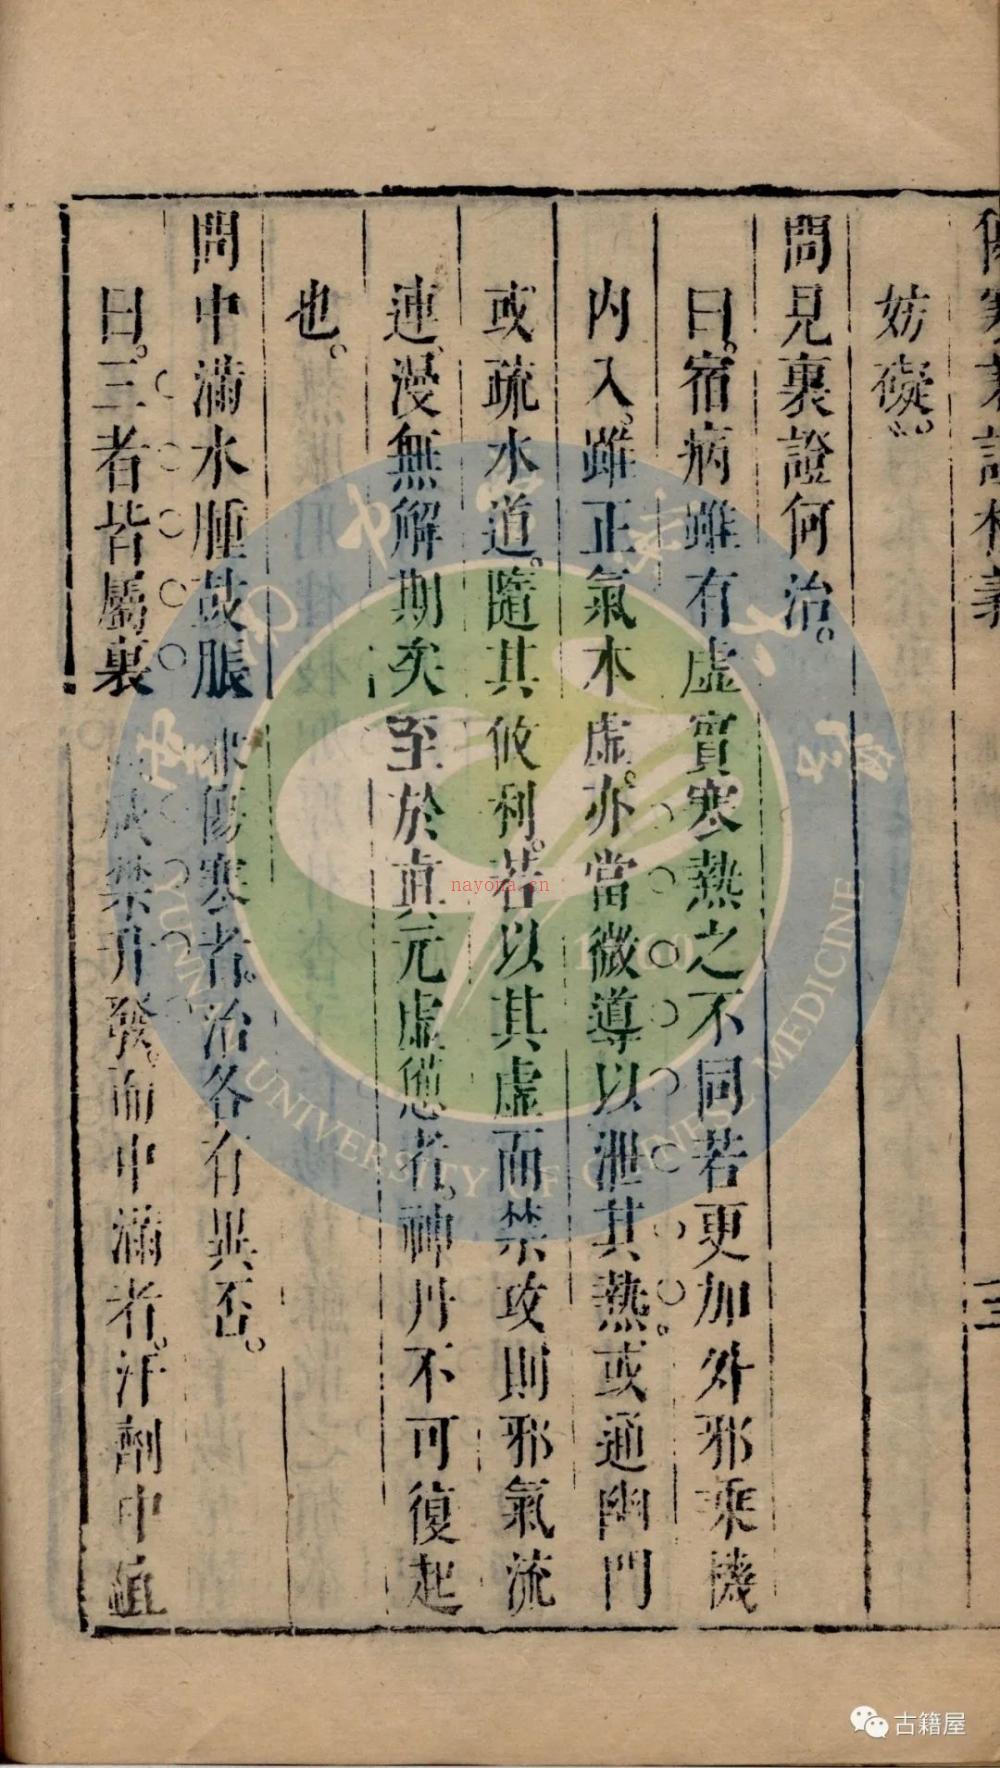 妨礙。
問見裏證何治。
曰。宿病雖有虛實寒熱之不同若更加外邪乘機
內入。雖正氣本虛。亦當微導以泄其熱。或通幽門
或疏水道。隨其攸利。若以其虛而禁攻則邪氣流
連、漫無解期矣至於真元虛憊者。神丹不可復起
也。
問中滿水腫鼓脹 傷寒者。治各有異否。
曰。三者皆屬裏 禁升發。而中滿者。汗劑中
三
nayona.cn
UNIVERSITY OF CHINESE MEDICINE
古籍屋